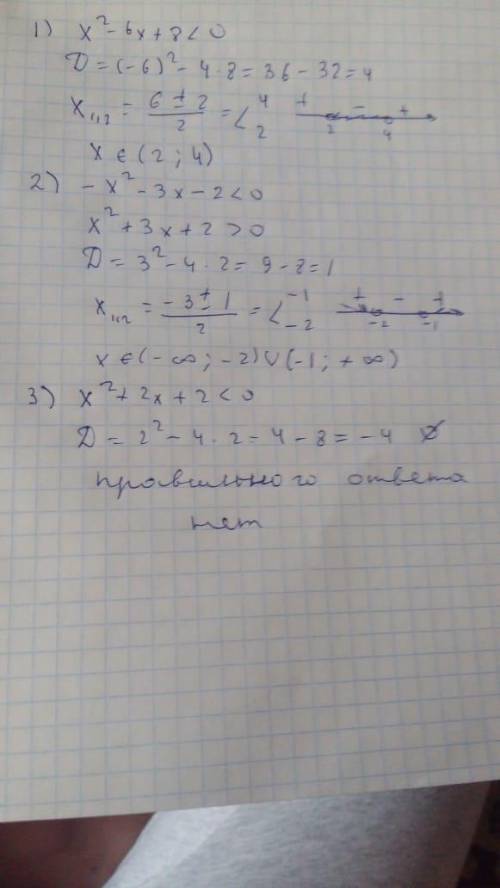 1) x² - 6x + 8 < 0
D = (-6)² - 4 · 8 = 36 - 32 = 4
x₁,₂ = (6 ± 2)/2 = < 4 2 + - + 2 4
x ∈ (2 ; 4)
2) -x² - 3x - 2 < 0
x² + 3x + 2 > 0
D = 3² - 4 · 2 = 9 - 8 = 1
x₁,₂ = (-3 ± 1)/2 = < -1 -2 + - + -2 -1
x ∈ (-∞ ; -2) ∪ (-1 ; +∞)
3) x² + 2x + 2 < 0
D = 2² - 4 · 2 = 4 - 8 = -4 ∅
правильного ответа
нет